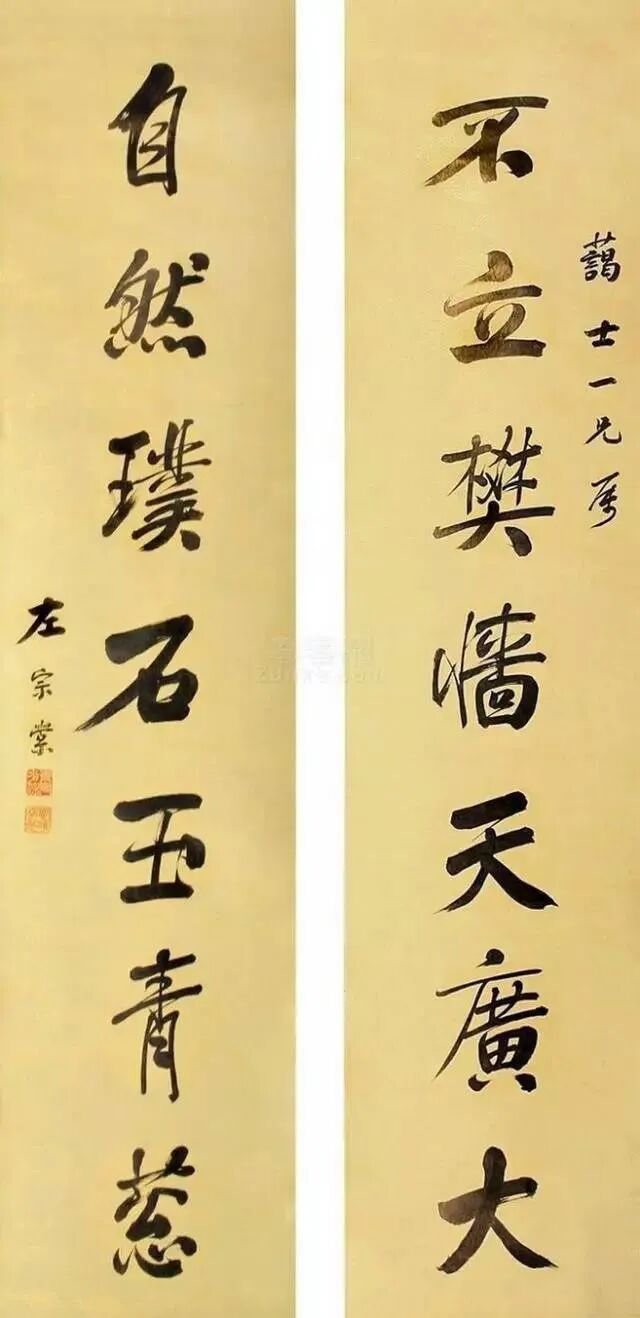 藹士一兄属
不立樊墻天廣大
自然璞石玉青葱
左宗棠